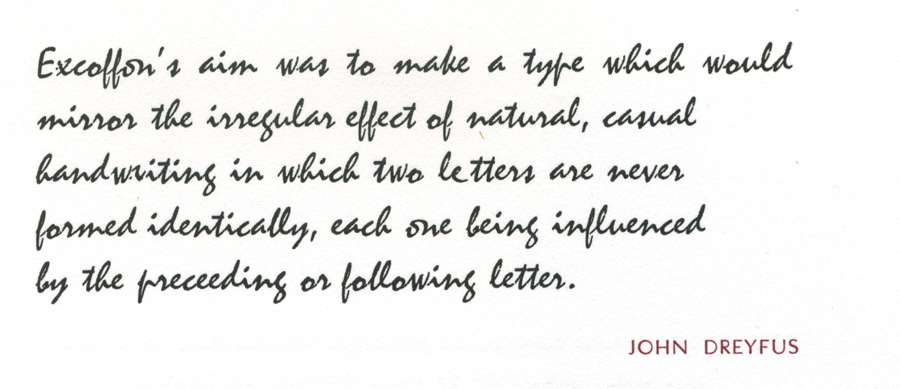 Excoffon's aim was to make a type which would
mirror the irregular effect of natural, casual
handwriting in which two letters are never
formed identically, each one being influenced
by the preceeding or following letter.
JOHN DREYFUS